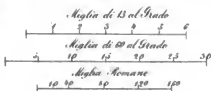 Miglia di 15 al Grado
1 2 3 4 5 6
Miglia di 60 al Grado
5 10 15 20 25 30
Miglia Romane
10 40 80 120 160